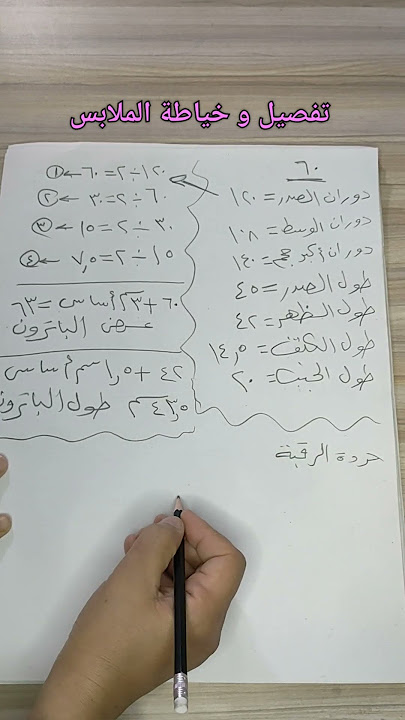 تفصيل و خياطة الملابس
٦٠
دوران الصدر = ١٢٠
دوران الوسط = ١٠٨
دوران أكبر حجم = ١٤٠
طول الصدر = ٤٥
طول الظهر = ٤٢
طول الكتف = ١٤,٥
طول الجنب = ٢٠
١٢٠ ÷ ٢ = ٦٠ ← ①
٦٠ ÷ ٢ = ٣٠ ← ②
٣٠ ÷ ٢ = ١٥ ← ③
١٥ ÷ ٢ = ٧,٥ ← ④
٦٠ + ٣سم أساس = ٦٣
عرض الباترون
٤٢ + ١,٥سم أساس
٤٣,٥سم طول الباترون
حردة الرقبة